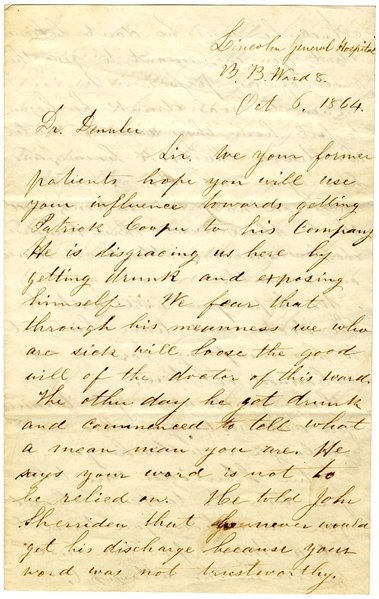 Lincoln General Hospital
B. B. Ward 8.
Oct 6. 1864.
Dr. Dennler
Sir. We your former
patients hope you will use
your influence towards getting
Patrick Cooper to his Company
He is disgracing us here by
getting drunk and exposing
himself. We fear that
through his meanness we who
are sick, will loose the good
will of the doctor of this ward.
The other day he got drunk
and commenced to tell what
a mean man you are. He
says your word is not to
be relied on. He told John
Sherridon that never would
get his discharge because your
word was not trustworthy.